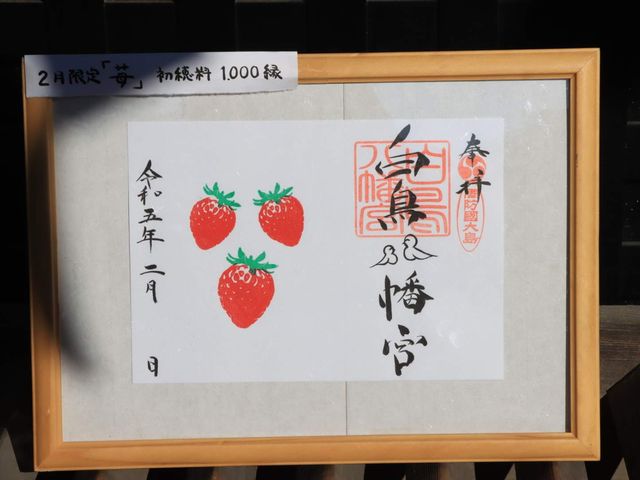 2月限定「苺」 初穂料 1,000縁
奉拝
周防國大島
白鳥八幡宮
令和五年 二月 日